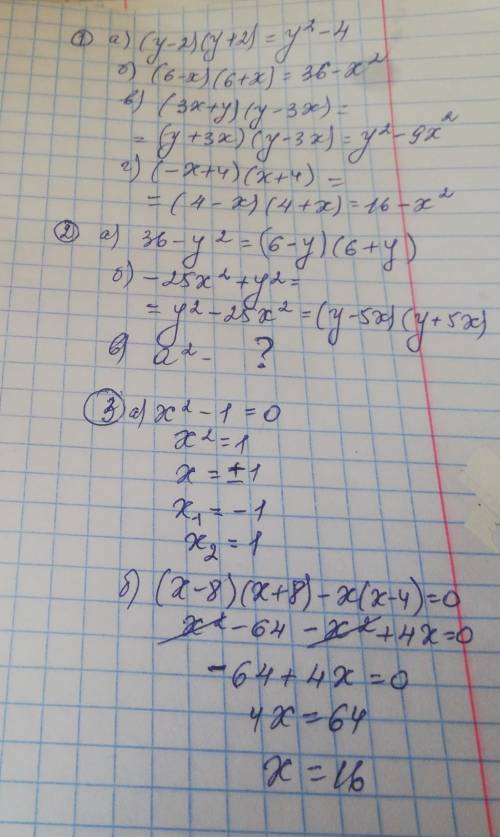 ① а) (y-2)(y+2) = y² - 4
б) (6-x)(6+x) = 36-x²
в) (3x+y)(y-3x) =
= (y+3x)(y-3x) = y² - 9x²
г) (-x+4)(x+4) =
= (4-x)(4+x) = 16-x²
② а) 36-y² = (6-y)(6+y)
б) -25x²+y² =
= y²-25x² = (y-5x)(y+5x)
в) a² - ?
③ а) x²-1=0
x²=1
x=±1
x₁=-1
x₂=1
б) (x-8)(x+8)-x(x-4)=0
x²-64-x²+4x=0
-64+4x=0
4x=64
x=16